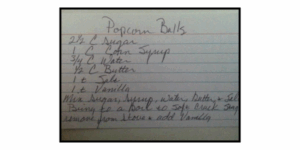 Popcorn Balls
2 1/2 C Sugar
1 C Corn Syrup
3/4 C Water
1/2 C Butter
1 t Salt
1 t Vanilla
Mix Sugar, Syrup, Water, Butter, & Salt
Bring to a Boil to Soft Crack Stage
remove from stove & add Vanilla